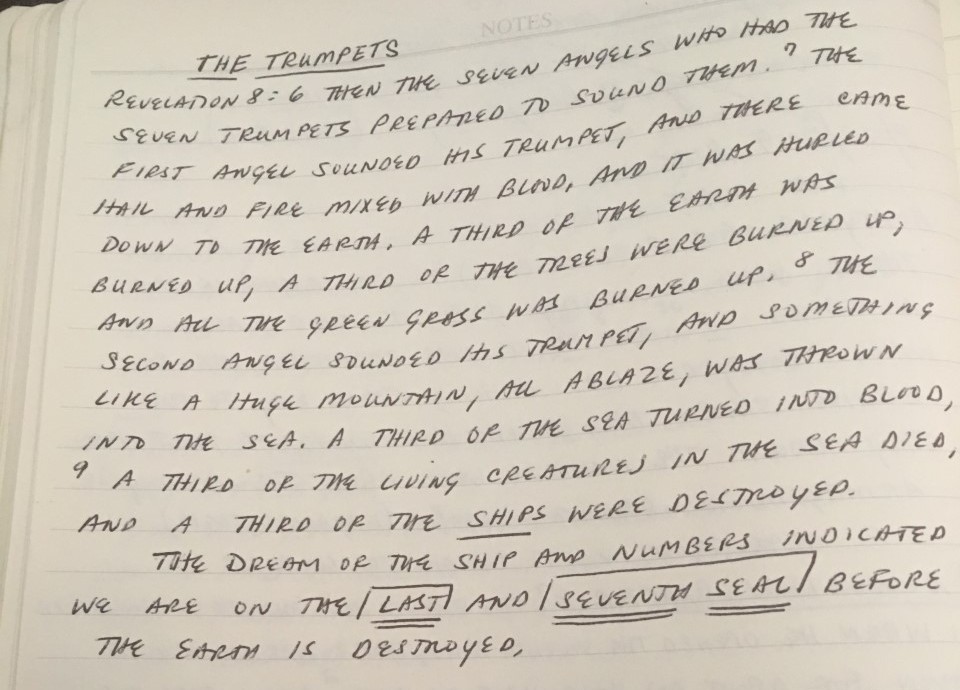 NOTES
THE TRUMPETS
REVELATION 8:6 THEN THE SEVEN ANGELS WHO HAD THE
SEVEN TRUMPETS PREPARED TO SOUND THEM. 7 THE
FIRST ANGEL SOUNDED HIS TRUMPET, AND THERE CAME
HAIL AND FIRE MIXED WITH BLOOD, AND IT WAS HURLED
DOWN TO THE EARTH. A THIRD OF THE EARTH WAS
BURNED UP, A THIRD OF THE TREES WERE BURNED UP,
AND ALL THE GREEN GRASS WAS BURNED UP. 8 THE
SECOND ANGEL SOUNDED HIS TRUMPET, AND SOMETHING
LIKE A HUGE MOUNTAIN, ALL ABLAZE, WAS THROWN
INTO THE SEA. A THIRD OF THE SEA TURNED INTO BLOOD,
9 A THIRD OF THE LIVING CREATURES IN THE SEA DIED,
AND A THIRD OF THE SHIPS WERE DESTROYED.
THE DREAM OF THE SHIP AND NUMBERS INDICATED
WE ARE ON THE LAST AND SEVENTH SEAL BEFORE
THE EARTH IS DESTROYED,